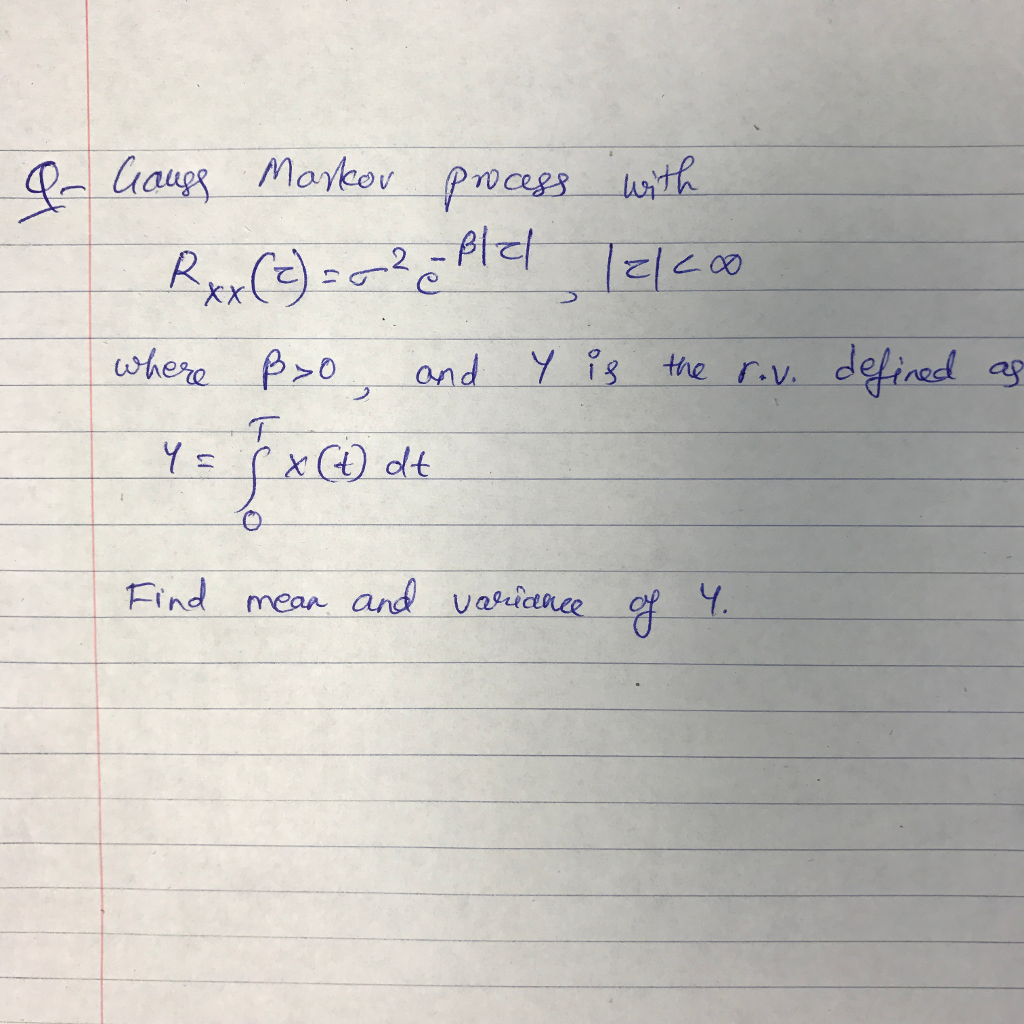 Q- Gauss Markov process with
Rxx(τ) = σ² e^-β|τ| , |τ| < ∞
where β>0, and Y is the r.v. defined as
Y = ∫₀ᵀ x(t) dt
Find mean and variance of Y.